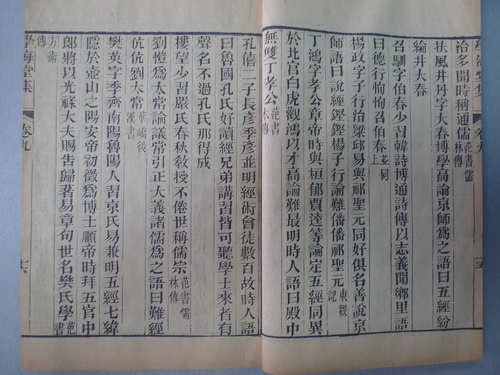 治多聞時稱通儒 范書儒林傳
扶風井丹字大春博學高論京師爲之語曰五經紛
綸井大春
召馴字伯春少習韓詩博通詩傳以志義聞鄉里語
曰德行恂恂召伯春 並同上
楊政字子行治梁邱易與祁聖元同好俱名善說京
師語曰說經鏗鏗楊子行論難僠僠祁聖元 東觀記
丁鴻字孝公章帝時與桓郁賈逵等論定五經同異
於北宮白虎觀鴻以才高論難最明時人語曰殿中
無雙丁孝公 范書本傳
孔僖二子長彥季彥並明經術會徒數百故時人語
曰魯國孔氏好讀經兄弟講習皆可聽學士來者有
聲名不過孔氏那得成
樓望少習嚴氏春秋敎授不倦世稱儒宗 范書儒林傳
劉愷爲太常論議常引正大義諸儒爲之語曰難經
伉伉劉太常 華嶠後漢書
樊英字季齊南陽魯陽人習京氏易兼明五經七緯
隱於壺山之陽安帝初徵爲博士順帝時拜五官中
郎將以光祿大夫賜告歸著易章句世名樊氏學 范書
方術傳
學海堂集 卷九